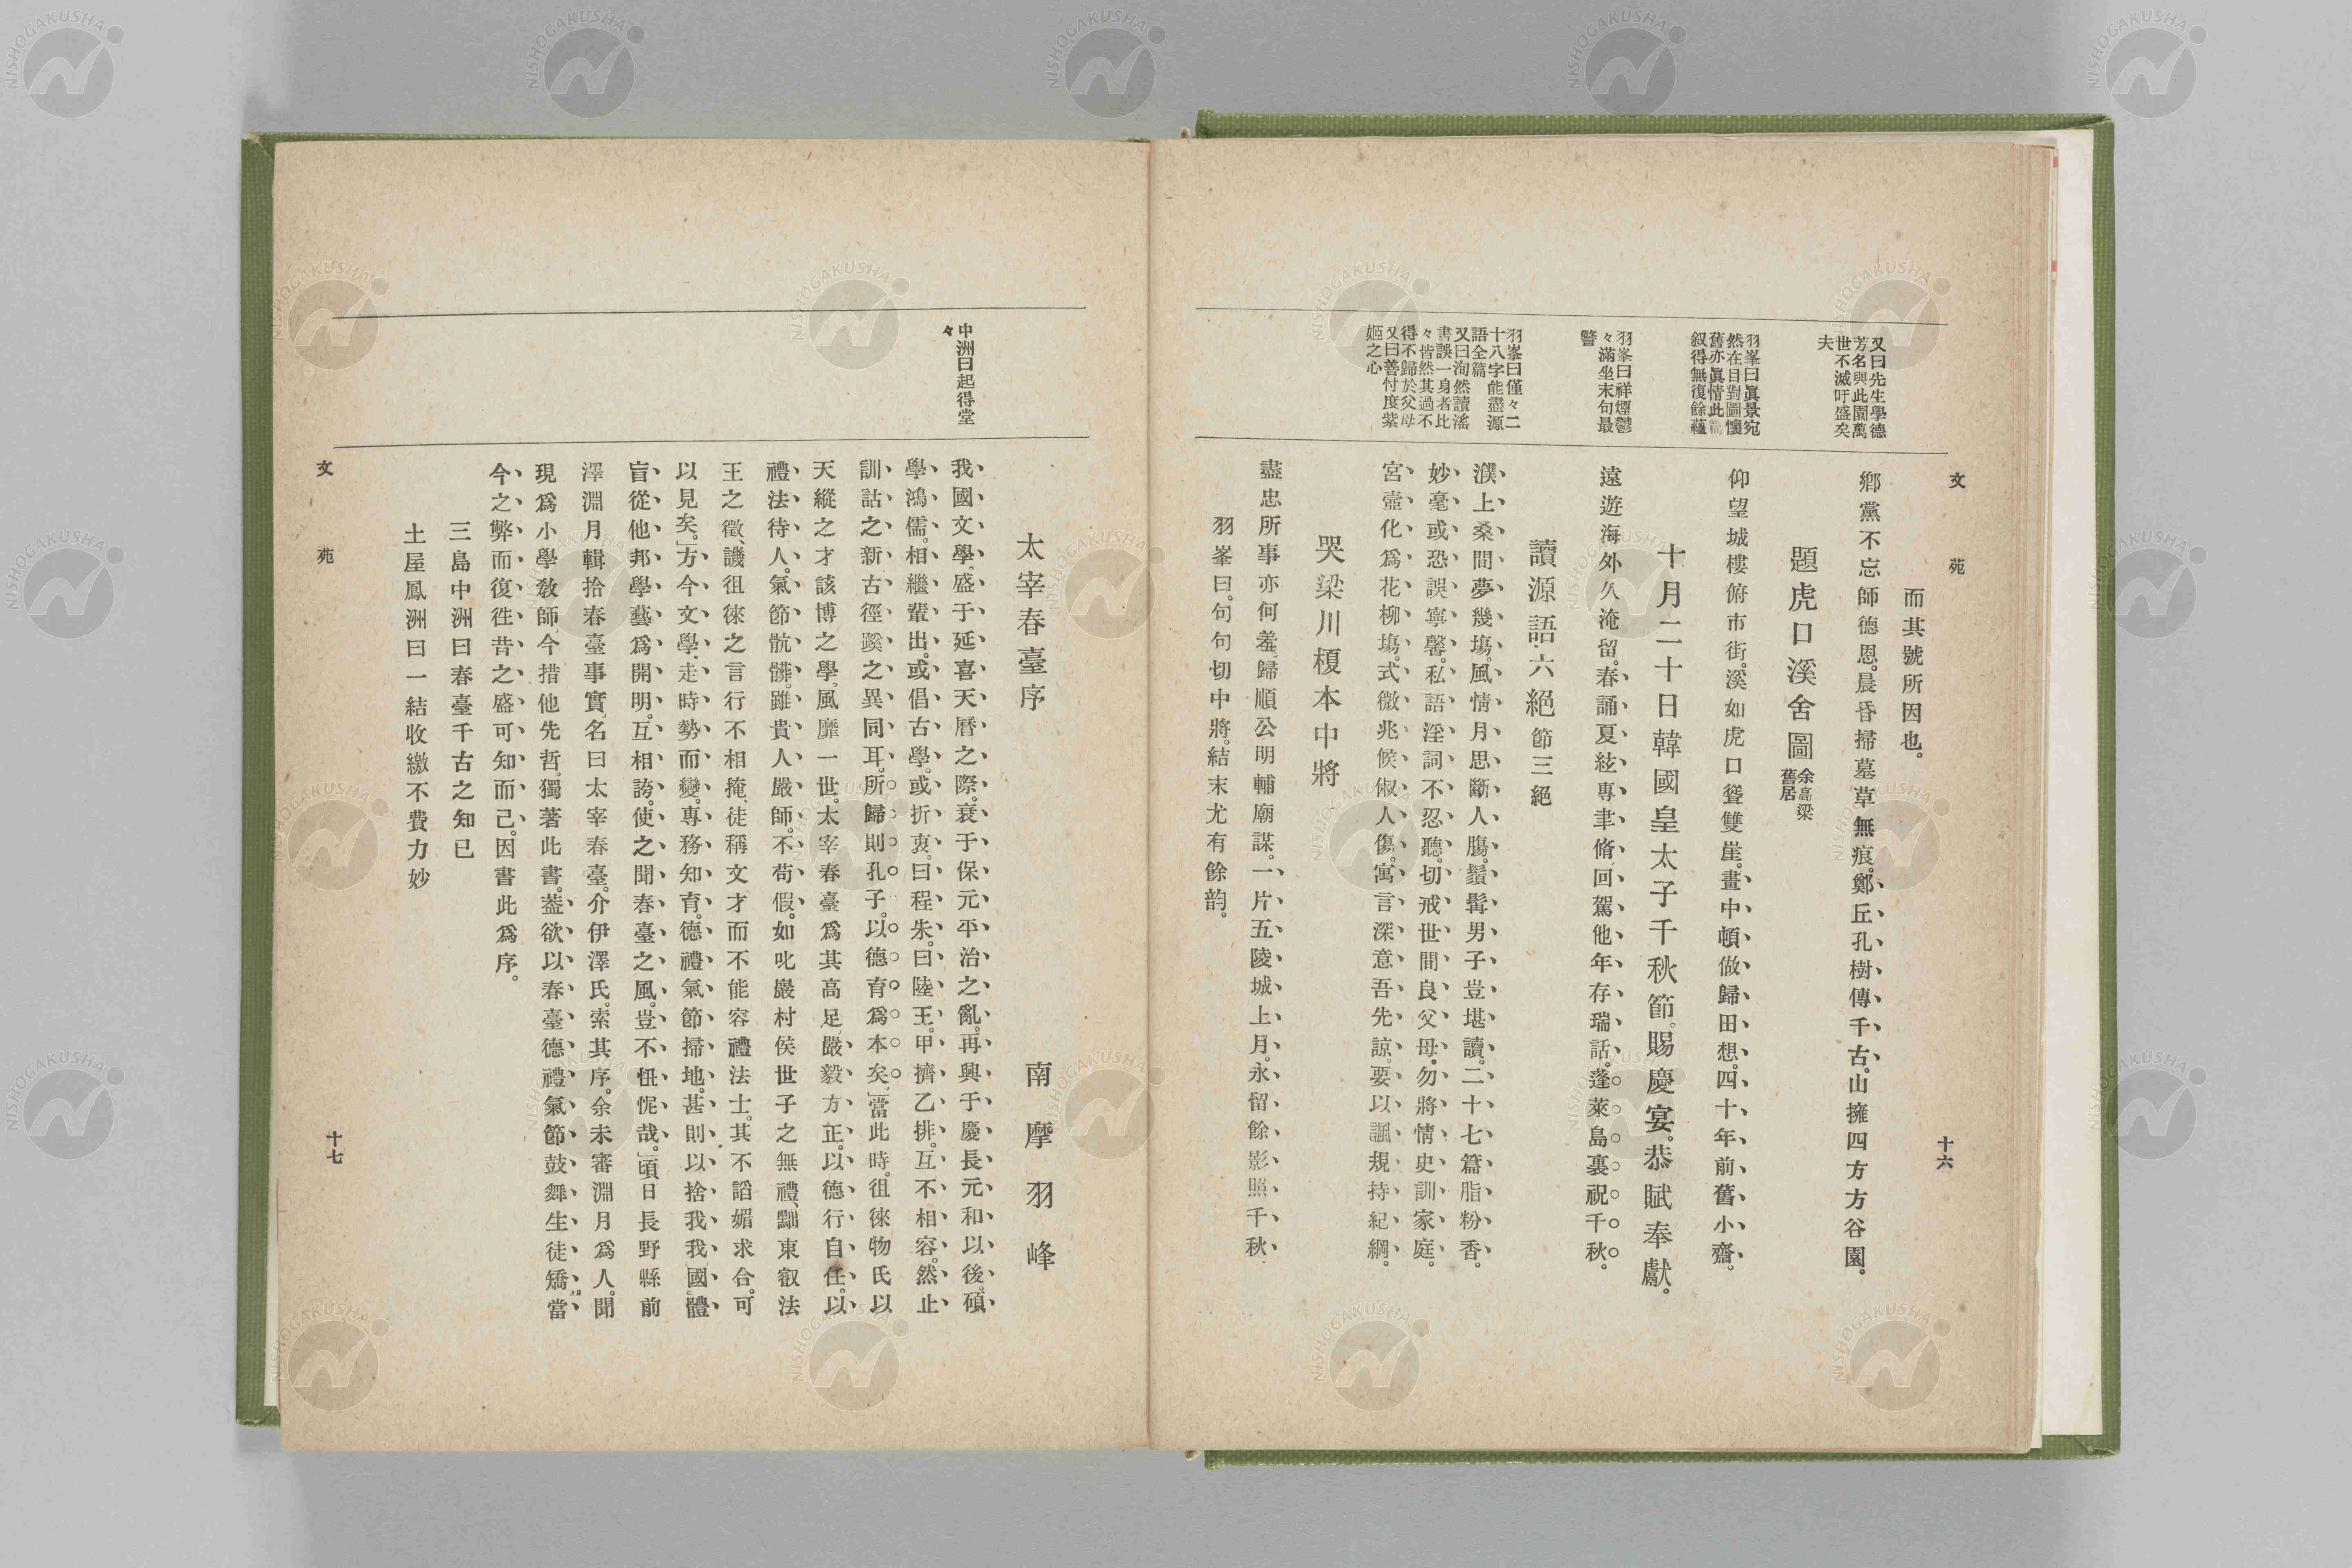 文苑
十六
又曰先生學德
芳名與此園萬
世不滅吁盛矣
夫
而其號所因也。
鄕黨不忘師德恩。晨昏掃墓草無痕。鄭丘孔樹傳千古。山擁四方方谷園。
題虎口溪舍圖 余高梁舊居
羽峯曰眞景宛
然在目對圖懷
舊亦眞情此篇
叙得無復餘蘊
仰望城樓俯市街。溪如虎口聳雙崖。畫中頓倣歸田想。四十年前舊小齋。
十月二十日韓國皇太子千秋節。賜慶宴。恭賦奉獻。
羽峯曰祥煙鬱
々滿坐末句最
警
遠遊海外久淹留。春誦夏絃專聿脩。回駕他年存瑞話。蓬萊島裏祝千秋。
讀源語六絕 節三絕
羽峯曰僅々二
十八字能盡源
語全篇
又曰洵然讀滛
書誤一身者比
々皆然其過不
得不歸於父母
又曰善忖度紫
姬之心
濮上桑間夢幾塲。風情月思斷人膓。鬚髯男子豈堪讀。二十七篇脂粉香。
妙毫或恐誤寧馨。私語淫詞不忍聽。切戒世間良父母。勿將情史訓家庭。
宮壼化爲花柳塲。式微兆候俶人傷。寓言深意吾先諒。要以諷規持紀綱。
哭梁川榎本中將
盡忠所事亦何羞。歸順公明輔廟謀。一片五陵城上月。永留餘影照千秋
羽峯曰。句句切中將。結末尤有餘韵。
太宰春臺序
南摩羽峰
中洲曰起得堂
々
我國文學。盛于延喜天曆之際。衰于保元平治之亂。再興于慶長元和以後。碩
學鴻儒。相繼輩出。或倡古學。或折衷。曰程朱。曰陸王。甲擠乙排。互不相容。然止
訓詁之新古徑蹊之異同耳。所歸則孔子。以德育爲本矣。」當此時。徂徠物氏以
天縱之才該博之學。風靡一世。太宰春臺爲其高足。嚴毅方正。以德行自任。以
禮法待人。氣節骯髒。雖貴人嚴師。不苟假。如叱巖村侯世子之無禮、黜東叡法
王之徵、譏徂徠之言行不相掩、徒稱文才而不能容禮法士。其不謟媚求合。可
以見矣。」方今文學。走時勢而變。專務知育。德禮氣節掃地。甚則以捨我我國體
盲從他邦學藝爲開明。互相誇。使之聞春臺之風。豈不忸怩哉。」頃日長野縣前
澤淵月輯拾春臺事實。名曰太宰春臺。介伊澤氏。索其序。余未審淵月爲人。聞
現爲小學敎師。今措他先哲。獨著此書。葢欲以春臺德禮氣節鼓舞生徒矯當
今之弊而復徃昔之盛可知而已。因書此爲序。
三島中洲曰春臺千古之知已
土屋鳳洲曰一結收繳不費力妙
文苑
十七